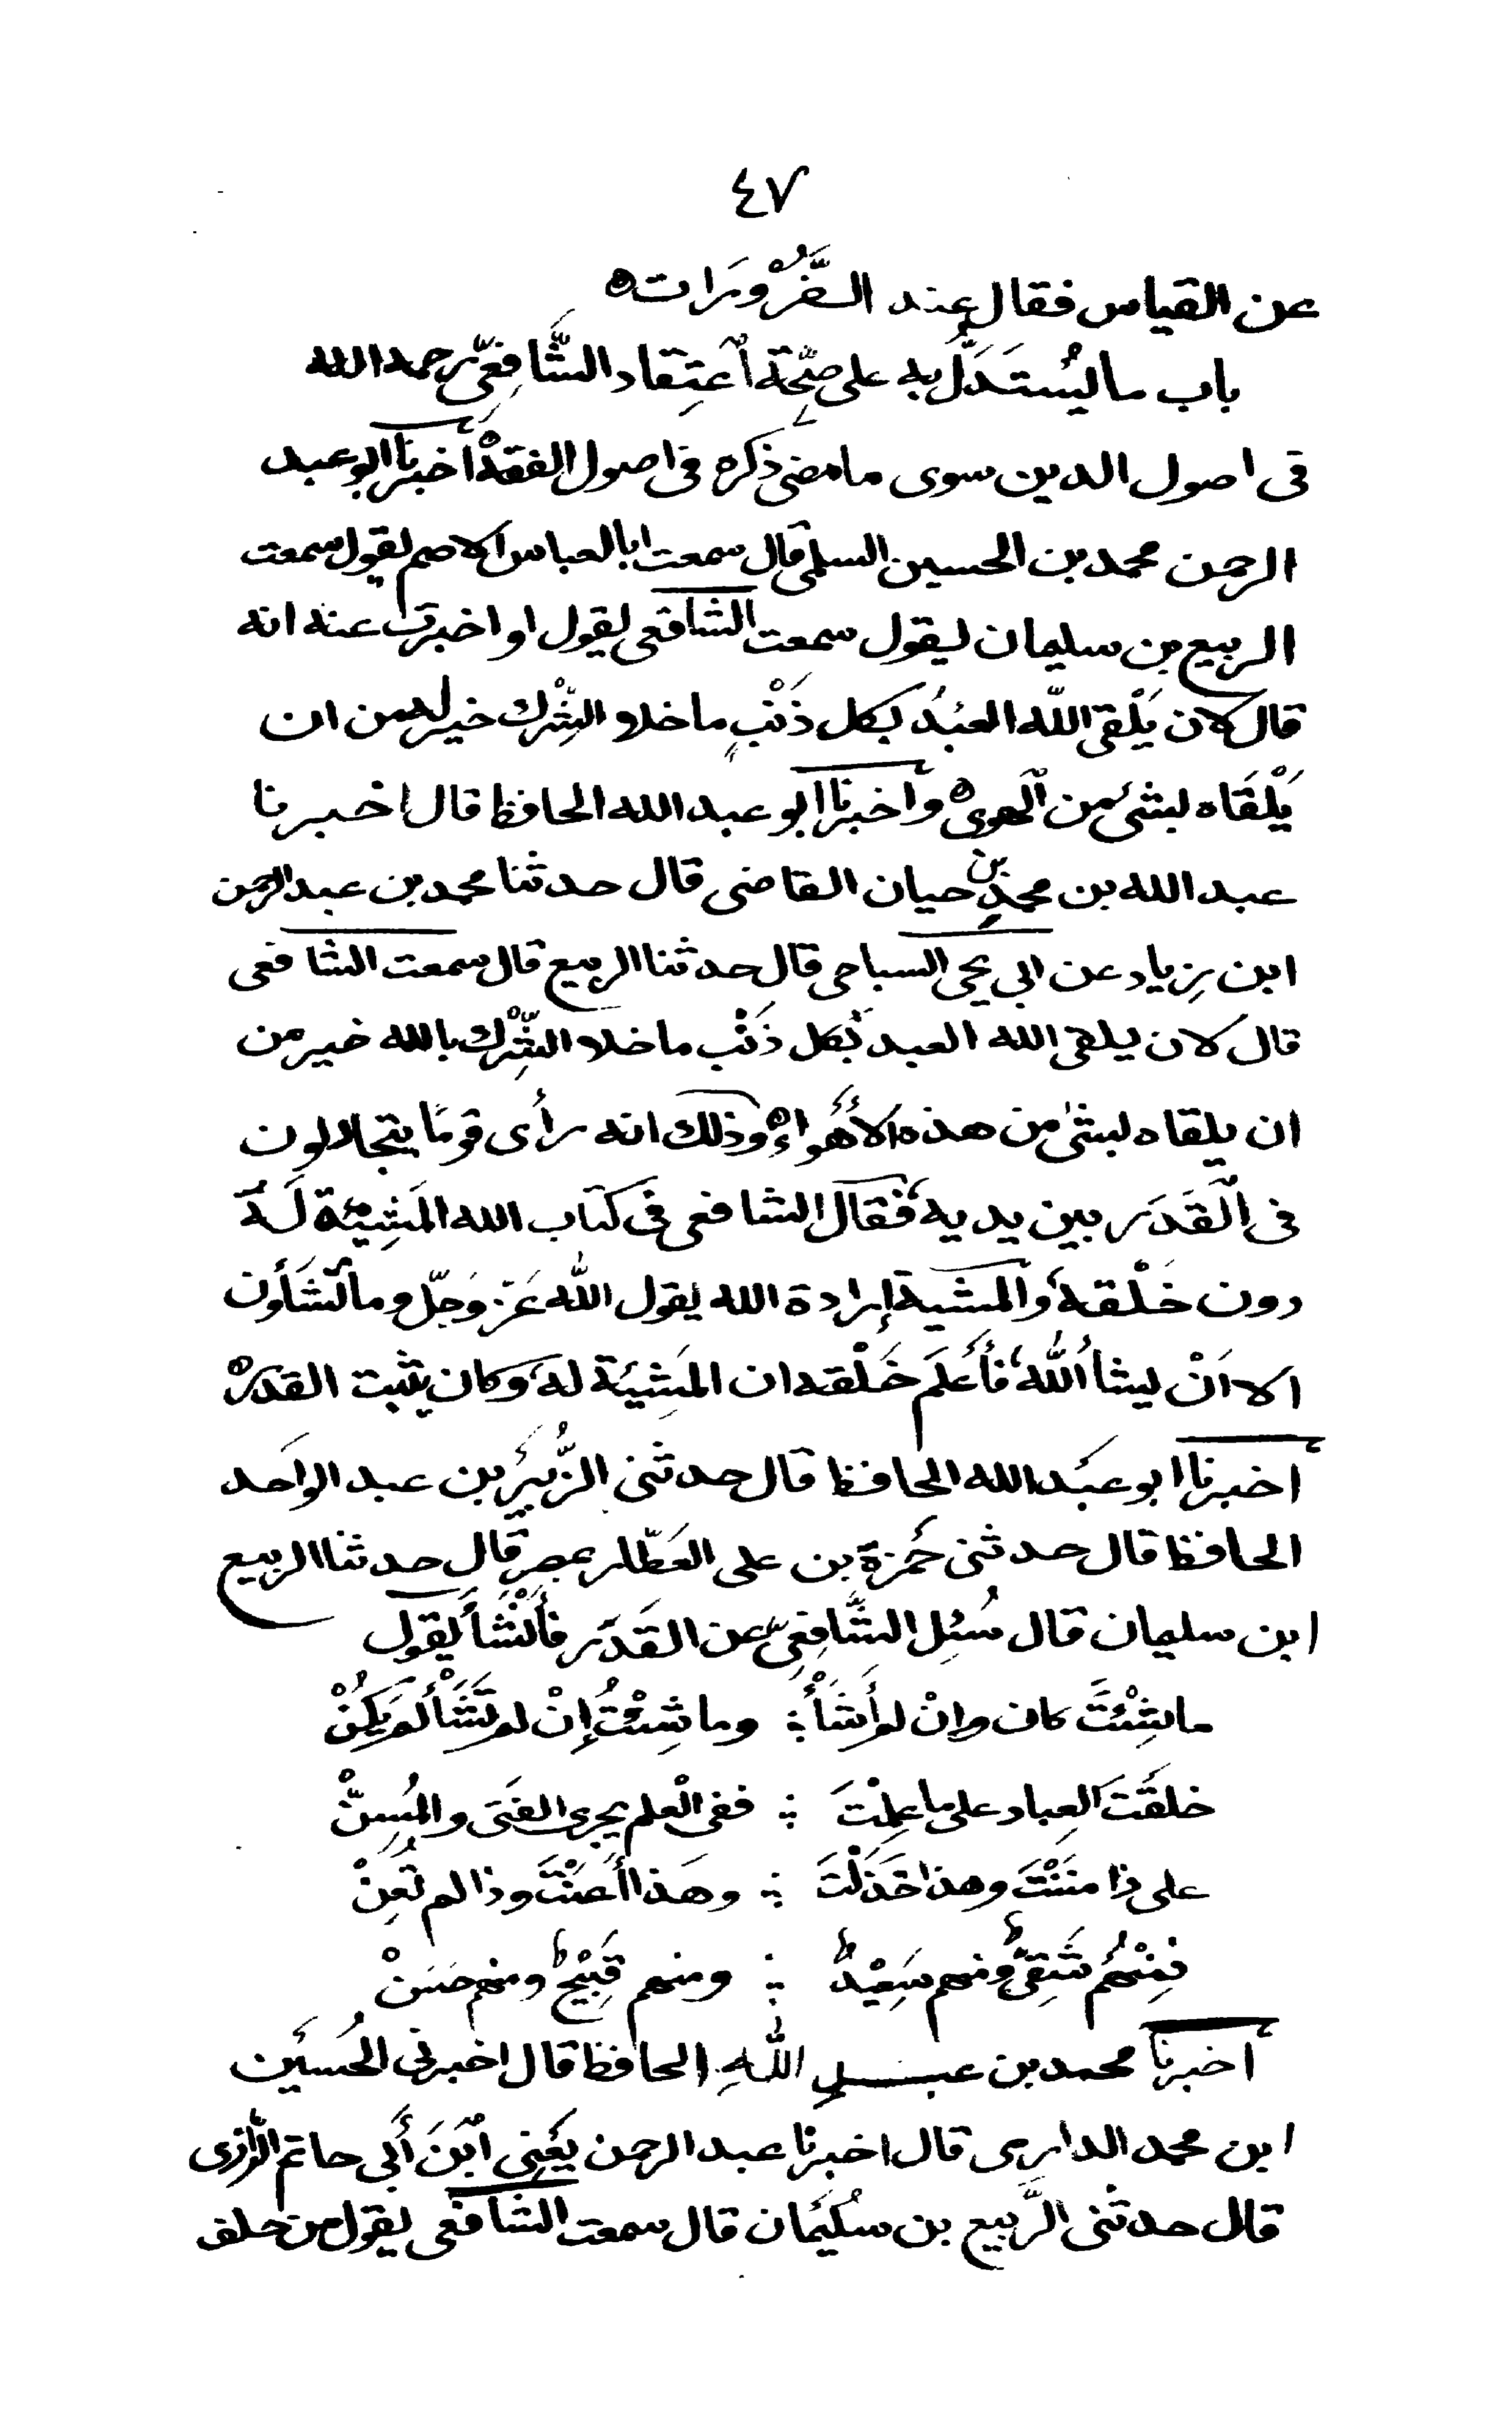 ٤٧
عن القياس فقال عند الضَّرُوْرَات
باب ما يُستَدَلُّ به على صِحَّة اعتِقاد الشَّافِعِيّ رحمه الله
فى اصول الدين سوى ما مضى ذكره فى اصول الفقه أخبرنا ابو عبد
الرحمن محمد بن الحسين السلمى قال سمعت ابا العباس الاصم يقول سمعت
الربيع بن سليمان يقول سمعت الشافعى يقول او اخبرت عنه انه
قال لان يَلْقى اللّه العبْدُ بكل ذَنْبٍ ما خلا الشِّرْك خير له من ان
يَلْقَاه بشئ من الْهَوى وأخبرنا ابو عبد الله الحافظ قال اخبرنا
عبد الله بن محمدِ بن حيان القاضى قال حدثنا محمد بن عبد الرحمن
ابن زياد عن ابي يحى الساجى قال حدثنا الربيع قال سمعت الشافعى
قال لان يلقى الله العبد بكل ذَنْب ما خلا الشِّرْك بالله خير من
ان يلقاه بشئ من هذه الأهْواءِ وذلك انه رأى قومًا يتجادلون
فى الْقَدَر بين يديه فقال الشافعى فى كتاب الله المَشِيّة لَهُ
دون خَلْقه والمشية إرادة الله يقول اللّه عَزّ وَجَلّ وما تَشَأون
الا اَنْ يشأ اللّه فأعلَم خَلْقه ان المَشِئة له وكان يثبت القدر
أخبرنا ابو عبَد الله الحافظ قال حدثنى الزُّبَيرُ بن عبد الواحَد
الحافظ قال حدثنى حَمزة بن على العَطّار بمصر قال حدثنا الربيع
ابن سليمان قال سُئِل الشَّافِعِىّ عن القَدَر فأنْشَأ يَقول
ما شِئْتَ كان وانْ لم أَشَأْ ؛ وما شِئْتُ إنْ لم تَشَأْ لَم يَكُنْ
خلقَتَ العِباد على ما عَلِمْتَ ؛ ففى الْعلم يجرى الفَتَى والمُسِنّْ
على ذا مَنَنْتَ وهذا خَذَلْتَ ؛ وهَذا أَعَنْتَ وذا لم تُعِنْ
فمِنْهُم شَقِىٌّ ومنهم سَعِيْدٌ ؛ ومنهم قَبِيْحٌ ومنهم حَسَنْ
أخبرنا محمد بن عبد اللّهِ الحافظ قال اخبرنى الحُسَيَن
ابن محمد الدارمى قال اخبرنا عبد الرحمن يَعْنِى ابْنَ أَبي حاتم الرّازى
قال حدثنى الرَّبيع بن سُلَيْمَان قال سمعت الشافعى يقول من حلف